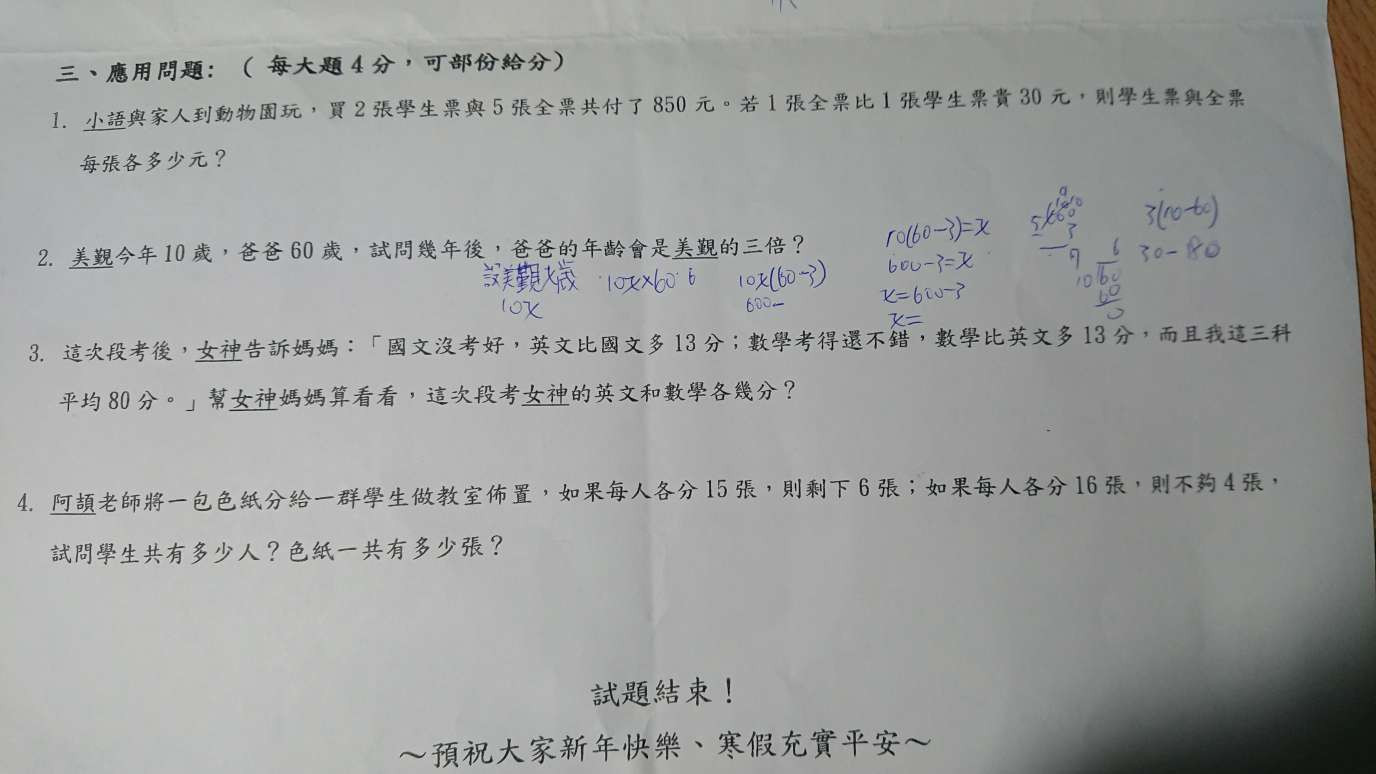 三、應用問題: ( 每大題4分，可部份給分)
1. 小語與家人到動物園玩，買2張學生票與5張全票共付了850元。若1張全票比1張學生票貴30元，則學生票與全票
每張各多少元？
2. 美觀今年10歲，爸爸60歲，試問幾年後，爸爸的年齡會是美觀的三倍？
設美觀x歲
10x
10x×60
6
10x(60-3)
600-
10(60-3)=x
600-3=x
x=600-3
x=
3(10-60)
30-180
3. 這次段考後，女神告訴媽媽：「國文沒考好，英文比國文多13分；數學考得還不錯，數學比英文多13分，而且我這三科
平均80分。」幫女神媽媽算看看，這次段考女神的英文和數學各幾分？
4. 阿頡老師將一包色紙分給一群學生做教室佈置，如果每人各分15張，則剩下6張；如果每人各分16張，則不夠4張，
試問學生共有多少人？色紙一共有多少張？
試題結束！
～預祝大家新年快樂、寒假充實平安～